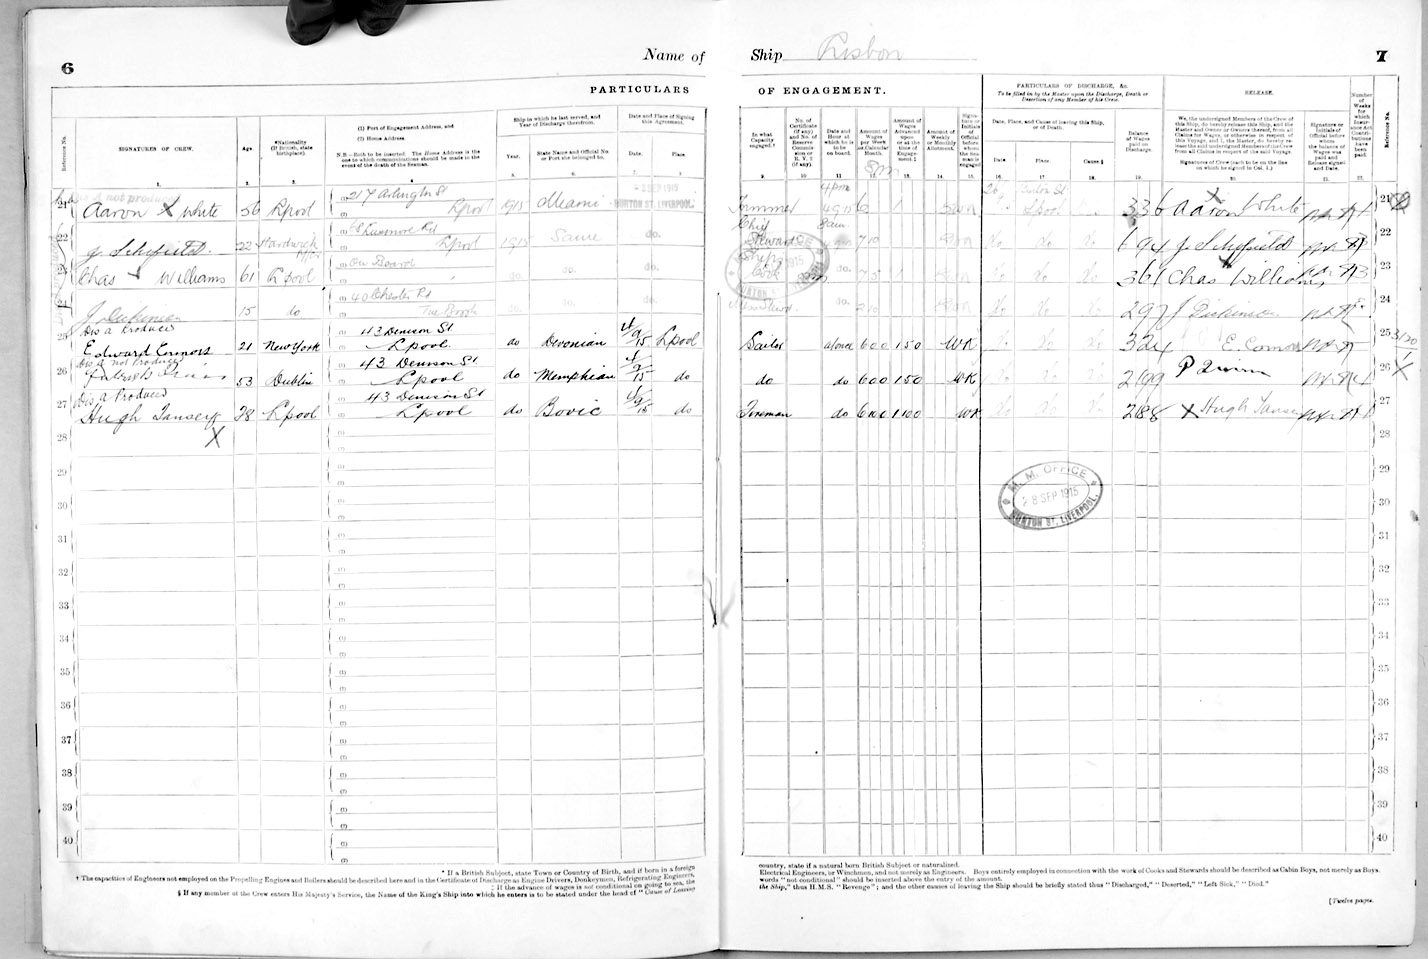 6
Name of
Ship Lisbon
7
PARTICULARS
OF ENGAGEMENT.
Reference No.
SIGNATURES OF CREW.
Age
*Nationality (If British, state birthplace).
(1) Port of Engagement Address, and
(2) Home Address
N.B.—Both to be inserted. The Home Address is the one to which communications should be made in the event of the death of the Seaman.
Ship in which he last served, and Year of Discharge therefrom.
Year.
State Name and Official No. or Port she belonged to.
Date and Place of Signing this Agreement.
Date.
Place
In what Capacity engaged.†
No. of Certificate (if any) and No. of Reserve Commission or R. V. 2 (if any).
Date and Hour at which he is to be on board.
Amount of Wages per Week or Calendar Month.
Amount of Wages Advanced upon or at the time of Engagement.‡
Amount of Weekly or Monthly Allotment.
Signature or Initials of Official before whom the Seaman is engaged
PARTICULARS OF DISCHARGE, &c.
To be filled in by the Master upon the Discharge, Death or Desertion of any Member of his Crew.
Date, Place, and Cause of leaving this Ship, or of Death.
Date
Place
Cause §
Balance of Wages paid on Discharge.
RELEASE.
We, the undersigned Members of the Crew of this Ship, do hereby release this Ship, and the Master and Owner or Owners thereof, from all Claims for Wages, or otherwise in respect of this Voyage, and I, the Master, do hereby release the undersigned Members of the Crew from all Claims in respect of the said Voyage.
Signatures of Crew (each to be on the line on which he signed in Col. 1.)
Signature or Initials of Official before whom the balance of Wages was paid and Release signed and Date.
Number of Weeks for which Insurance Act Contributions have been paid.
Reference No.
1. 2. 3. 4 5. 6. 7. 8. 9. 10 11. 12. 13. 14. 15. 16. 17. 18. 19. 20. 21. 22.
Dis A not produced
21 Aaron X White 56 Lpool 217 Arlington St Lpool 1915 Miami SEP 1915 NORTON ST. LIVERPOOL. Trimmer 4pm 4 9 15 Lpool 336 Aaron X White 21
22 J. Schofield 22 Hardwick Lpool 1915 Same do. Chief Steward 7 10 do do do 694 J. Schofield 22
23 Chas X Williams 61 Lpool On Board do. do. do. Ships Cook do. 7 5 do do 361 Chas X Williams 23
24 J. Dickinson 15 do 40 Chester Rd Tue Brook do. do. do. do. 2 10 do do do 297 J Dickinson 24
Dis A Produced
25 Edward Connors 21 New York 43 Denison St Lpool. do Devonian 4/9/15 Lpool Sailor at once 6 00 1 50 WK 324 E. Connors 25
Dis A not Produced
26 53 Dublin 43 Denison St. Lpool do Memphian 4/9/15 do do do 6 00 1 50 WK do do do 2199 P 26
Dis A Produced
27 Hugh Tansey 28 Lpool 43 Denison St Lpool do Bovic 4/9/15 do Fireman do 6 00 1 00 WK do do do 288 X Hugh Tansey 27
X
28 28
29 29
30 30
31 31
32 32
33 33
34 34
35 35
36 36
37 37
38 38
39 39
40 40
M. M. OFFICE
28 SEP 1915
NORTON ST. LIVERPOOL.
* If a British Subject, state Town or Country of Birth, and if born in a foreign
country, state if a natural born British Subject or naturalized.
† The capacities of Engineers not employed on the Propelling Engines and Boilers should be described here and in the Certificate of Discharge as Engine Drivers, Donkeymen, Refrigerating Engineers,
Electrical Engineers, or Winchmen, and not merely as Engineers. Boys entirely employed in connection with the work of Cooks and Stewards should be described as Cabin Boys, not merely as Boys.
‡ If the advance of wages is not conditional on going to sea, the
words "not conditional" should be inserted above the entry of the amount.
§ If any member of the Crew enters His Majesty's Service, the Name of the King's Ship into which he enters is to be stated under the head of "Cause of Leaving
the Ship," thus H.M.S. "Revenge"; and the other causes of leaving the Ship should be briefly stated thus "Discharged," "Deserted," "Left Sick," "Died."
[Twelve pages.